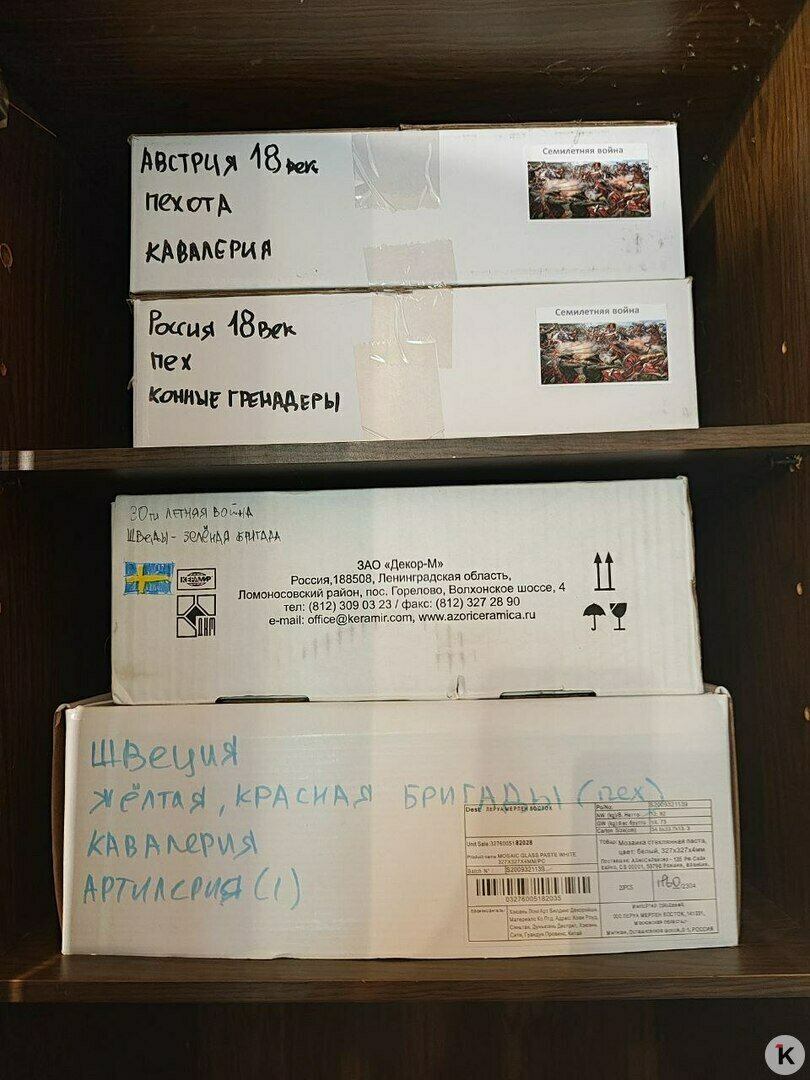 АВСТРИЯ 18 век
Семилетняя война
ПЕХОТА
КАВАЛЕРИЯ
Россия 18 век
Семилетняя война
пех
КОННЫЕ ГРЕНАДЕРЫ
30ти ЛЕТНЯЯ ВОЙНА
ШВЕДЫ - ЗЕЛЁНАЯ БРИГАДА
КЕРАМИР
ДКМ
ЗАО «Декор-М»
Россия,188508, Ленинградская область,
Ломоносовский район, пос. Горелово, Волхонское шоссе, 4
тел: (812) 309 03 23 / факс: (812) 327 28 90
e-mail: office@keramir.com, www.azoriceramica.ru
ШВЕЦИЯ
ЖЁЛТАЯ, КРАСНАЯ БРИГАДЫ (пех)
КАВАЛЕРИЯ
АРТИЛЕРИЯ (1)
Dest: ЛЕРУА МЕРЛЕН ВОСТОК
Po/No. IS2009321139
Carton Size(cm)
Unit Sale:3276005182028
Product name: MOSAIC GLASS PASTE WHITE
327X327X4MM/PC
Batch N° IS2009321139
03276005182035
товар: Мозаика стеклянная паста,
цвет: белый, 327x327x4мм
20PCS
ООО ЛЕРУА МЕРЛЕН ВОСТОК, 141031,
Московская область
K